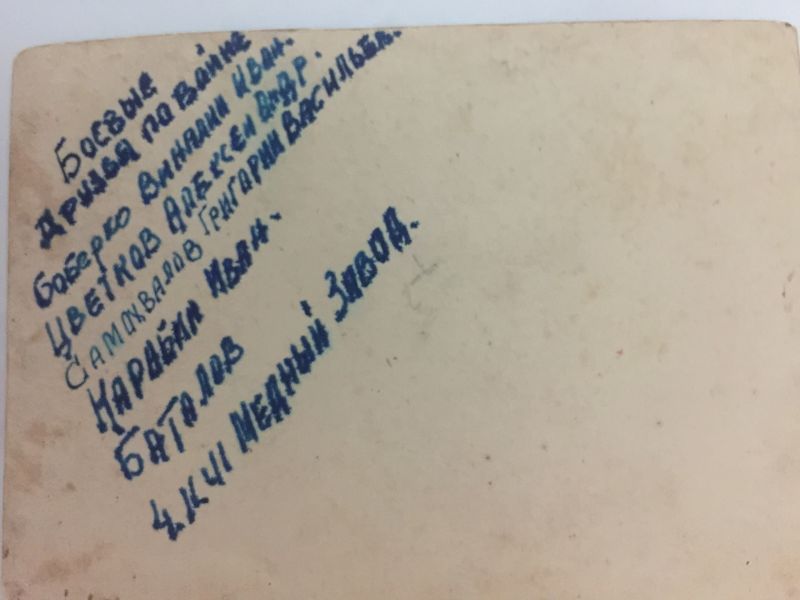 Боевые
Друзья по Войне
Боберко Виталий Иван.
Цветков Алексей Андр.
Самохвалов Григарий Васильев.
Карабан Иван.
Баталов
Медный Завод.